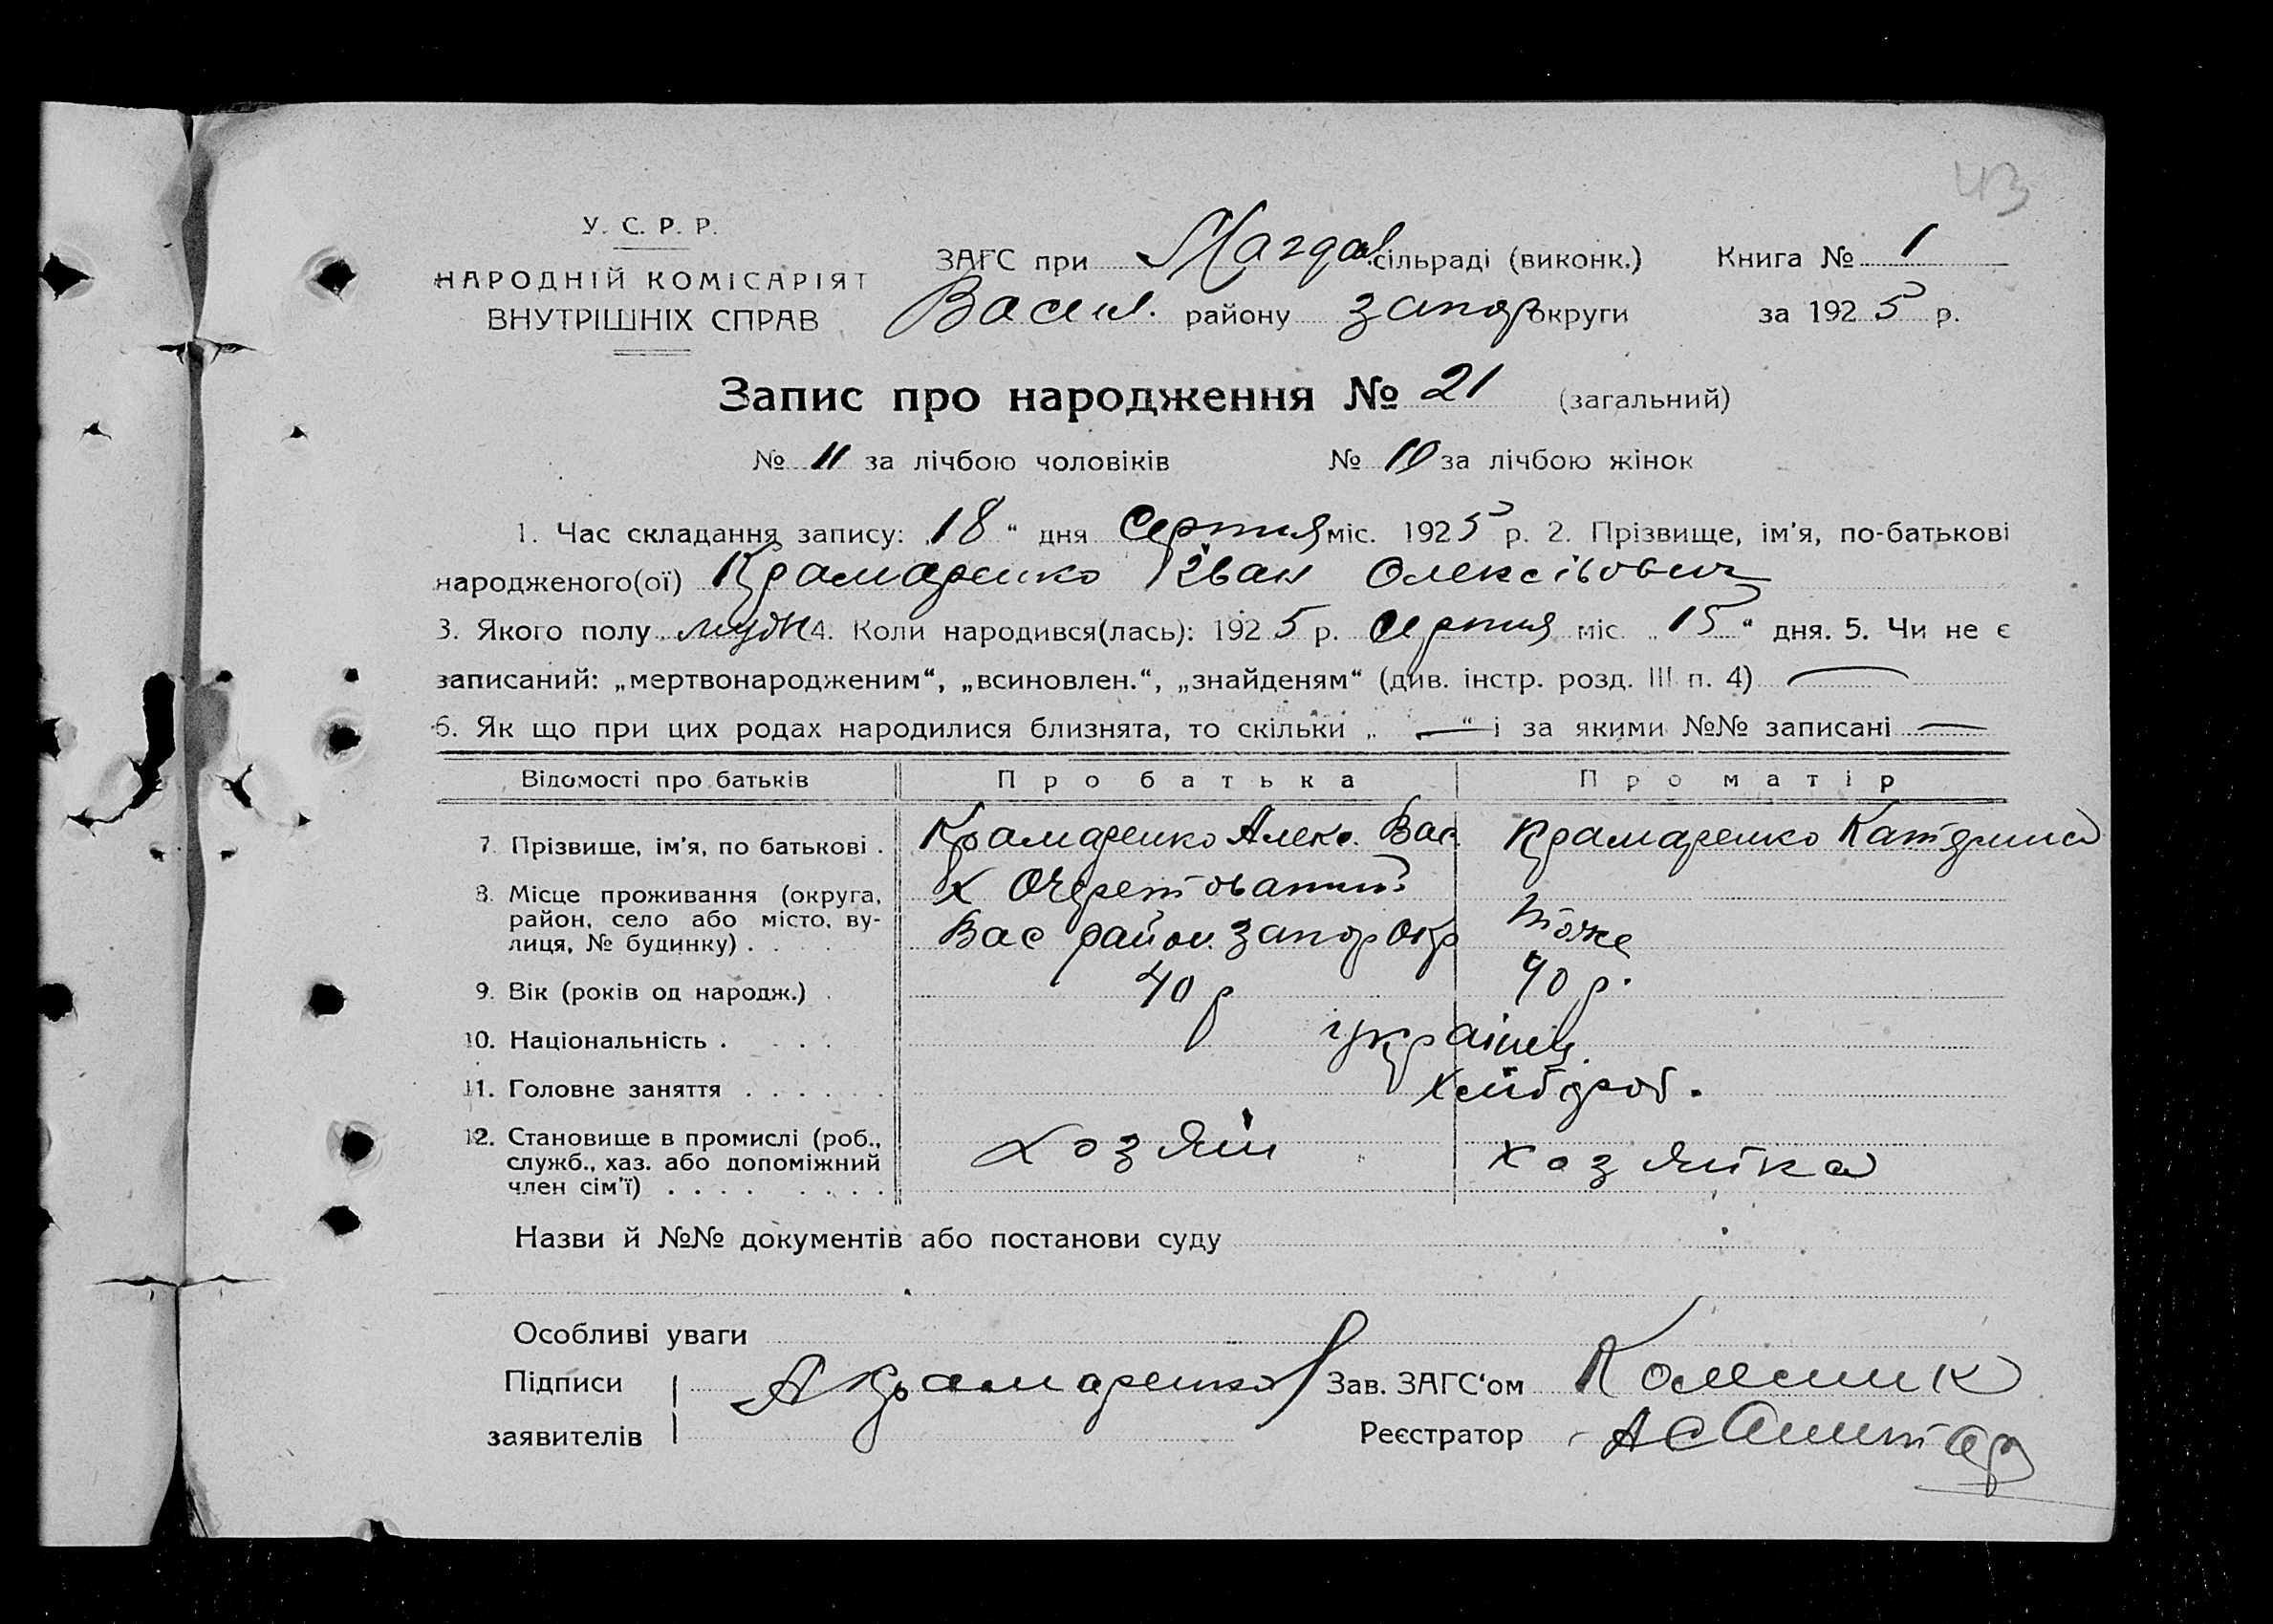 43
У. С. Р. Р.
НАРОДНІЙ КОМІСАРІЯТ
ВНУТРІШНІХ СПРАВ
ЗАГС при Магдал. сільраді (виконк.) Книга № 1
Васил. району Запор округи за 1925 р.
Запис про народження № 21 (загальний)
№ 11 за лічбою чоловіків № 10 за лічбою жінок
1. Час складання запису: „18“ дня Серпня міс. 1925 р. 2. Прізвище, ім'я, по-батькові
народженого(ої) Крамаренко Іван Олексійович
3. Якого полу муж 4. Коли народився(лась): 1925 р. Серпня міс. „15“ дня. 5. Чи не є
записаний: „мертвонародженим“, „всиновлен.“, „знайденям“ (див. інстр. розд. III п. 4) —
6. Як що при цих родах народилися близнята, то скільки „ — “ і за якими №№ записані —
Відомості про батьків Про батька Про матір
7. Прізвище, ім'я, по батькові . Крамаренко Алекс. Вас. Крамаренко Катерина
8. Місце проживання (округа, район, село або місто, вулиця, № будинку) . . . . х Очеретоватий
Вас район. Запор Окр тоже
9. Вік (років од народж.) . 40 р 40 р.
10. Національність . . . . українц.
11. Головне заняття . . . . . . Хлібороб.
12. Становище в промислі (роб., служб., хаз. або допоміжний член сім'ї) . . . . . . . . хозяін хозяйка
Назви й №№ документів або постанови суду
Особливі уваги
Підписи заявителів А Крамаренко
Зав. ЗАГС'ом Колесник
Реєстратор